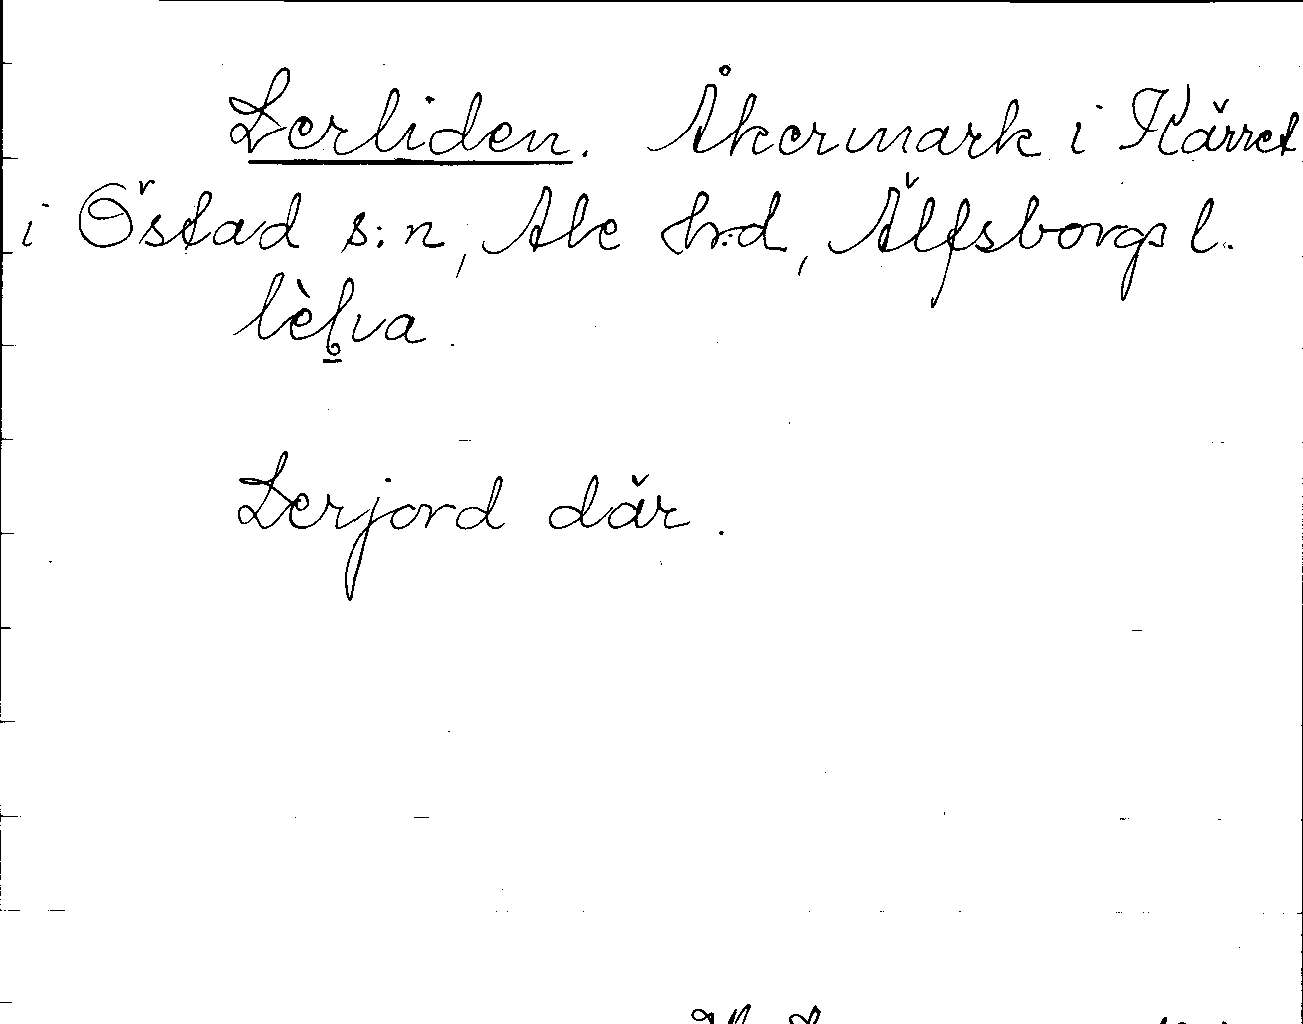 Lerliden. Åkermark i Kärret
i Östad s:n, Ale h:d, Älfsborgs l.
Lerjord där.